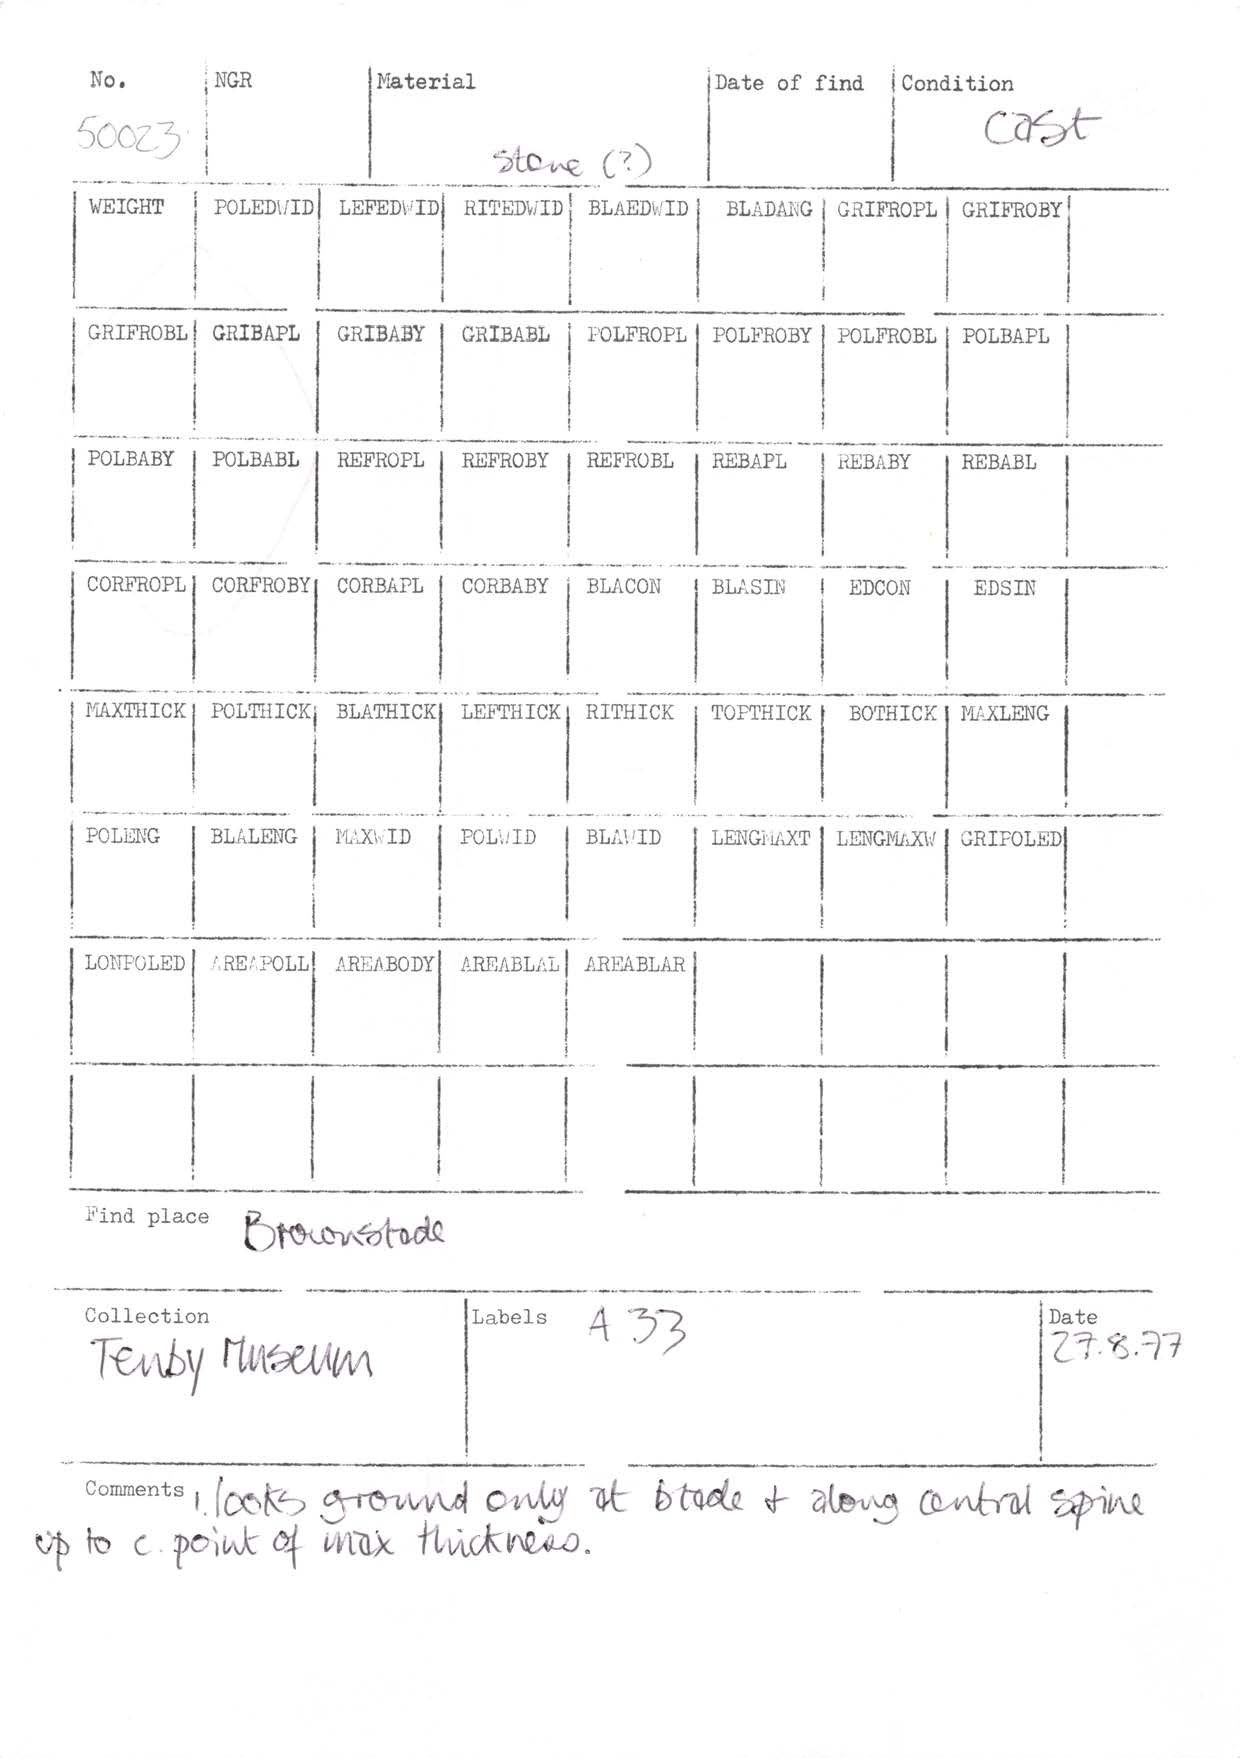 No. NGR Material Date of find Condition
50023 stone (?) cast
WEIGHT POLEDWID LEFEDWID RITEDWID BLAEDWID BLADANG GRIFROPL GRIFROBY
GRIFROBL GRIBAPL GRIBABY GRIBABL POLFROPL POLFROBY POLFROBL POLBAPL
POLBABY POLBABL REFROPL REFROBY REFROBL REBAPL REBABY REBABL
CORFROPL CORFROBY CORBAPL CORBABY BLACON BLASIN EDCON EDSIN
MAXTHICK POLTHICK BLATHICK LEFTHICK RITHICK TOPTHICK BOTHICK MAXLENG
POLENG BLALENG MAXWID POLWID BLAWID LENGMAXT LENGMAXW GRIPOLED
LONPOLED AREAPOLL AREABODY AREABLAL AREABLAR
Find place Brownslade
Collection Labels A 33 Date
Tenby Museum 27.8.77
Comments 1. looks ground only at blade & along central spine
up to c. point of max thickness.